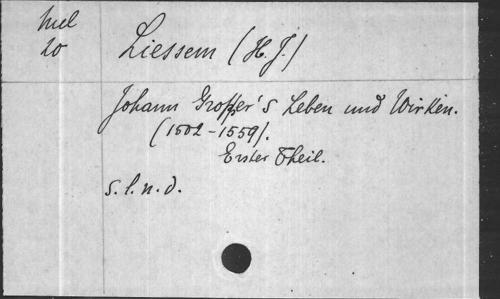 Mel
20
Liessem (H. J.)
Johann Gropper's Leben und Wirken.
(1502-1559).
Erster Theil.
s. l. n. d.